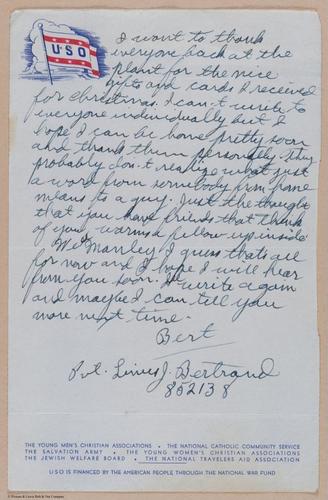 USO
I want to thank
everyone back at the
plant for the nice
gifts and cards I received
for christmas. I can't write to
everyone individually but I
hope I can be home pretty soon
and thank them personally. They
probably don't realize what just
a word from somebody from home
means to a guy. Just the thought
that you have friends that think
of you warms a fellow up inside.
Well Manley I guess that's all
for now and I hope I will hear
from you soon. I'll write again
and maybe I can tell you
more next time.
Bert
Pvt. Linus J. Bertrand
852138
THE YOUNG MEN'S CHRISTIAN ASSOCIATIONS • THE NATIONAL CATHOLIC COMMUNITY SERVICE
THE SALVATION ARMY • THE YOUNG WOMEN'S CHRISTIAN ASSOCIATIONS
THE JEWISH WELFARE BOARD • THE NATIONAL TRAVELERS AID ASSOCIATION
USO IS FINANCED BY THE AMERICAN PEOPLE THROUGH THE NATIONAL WAR FUND